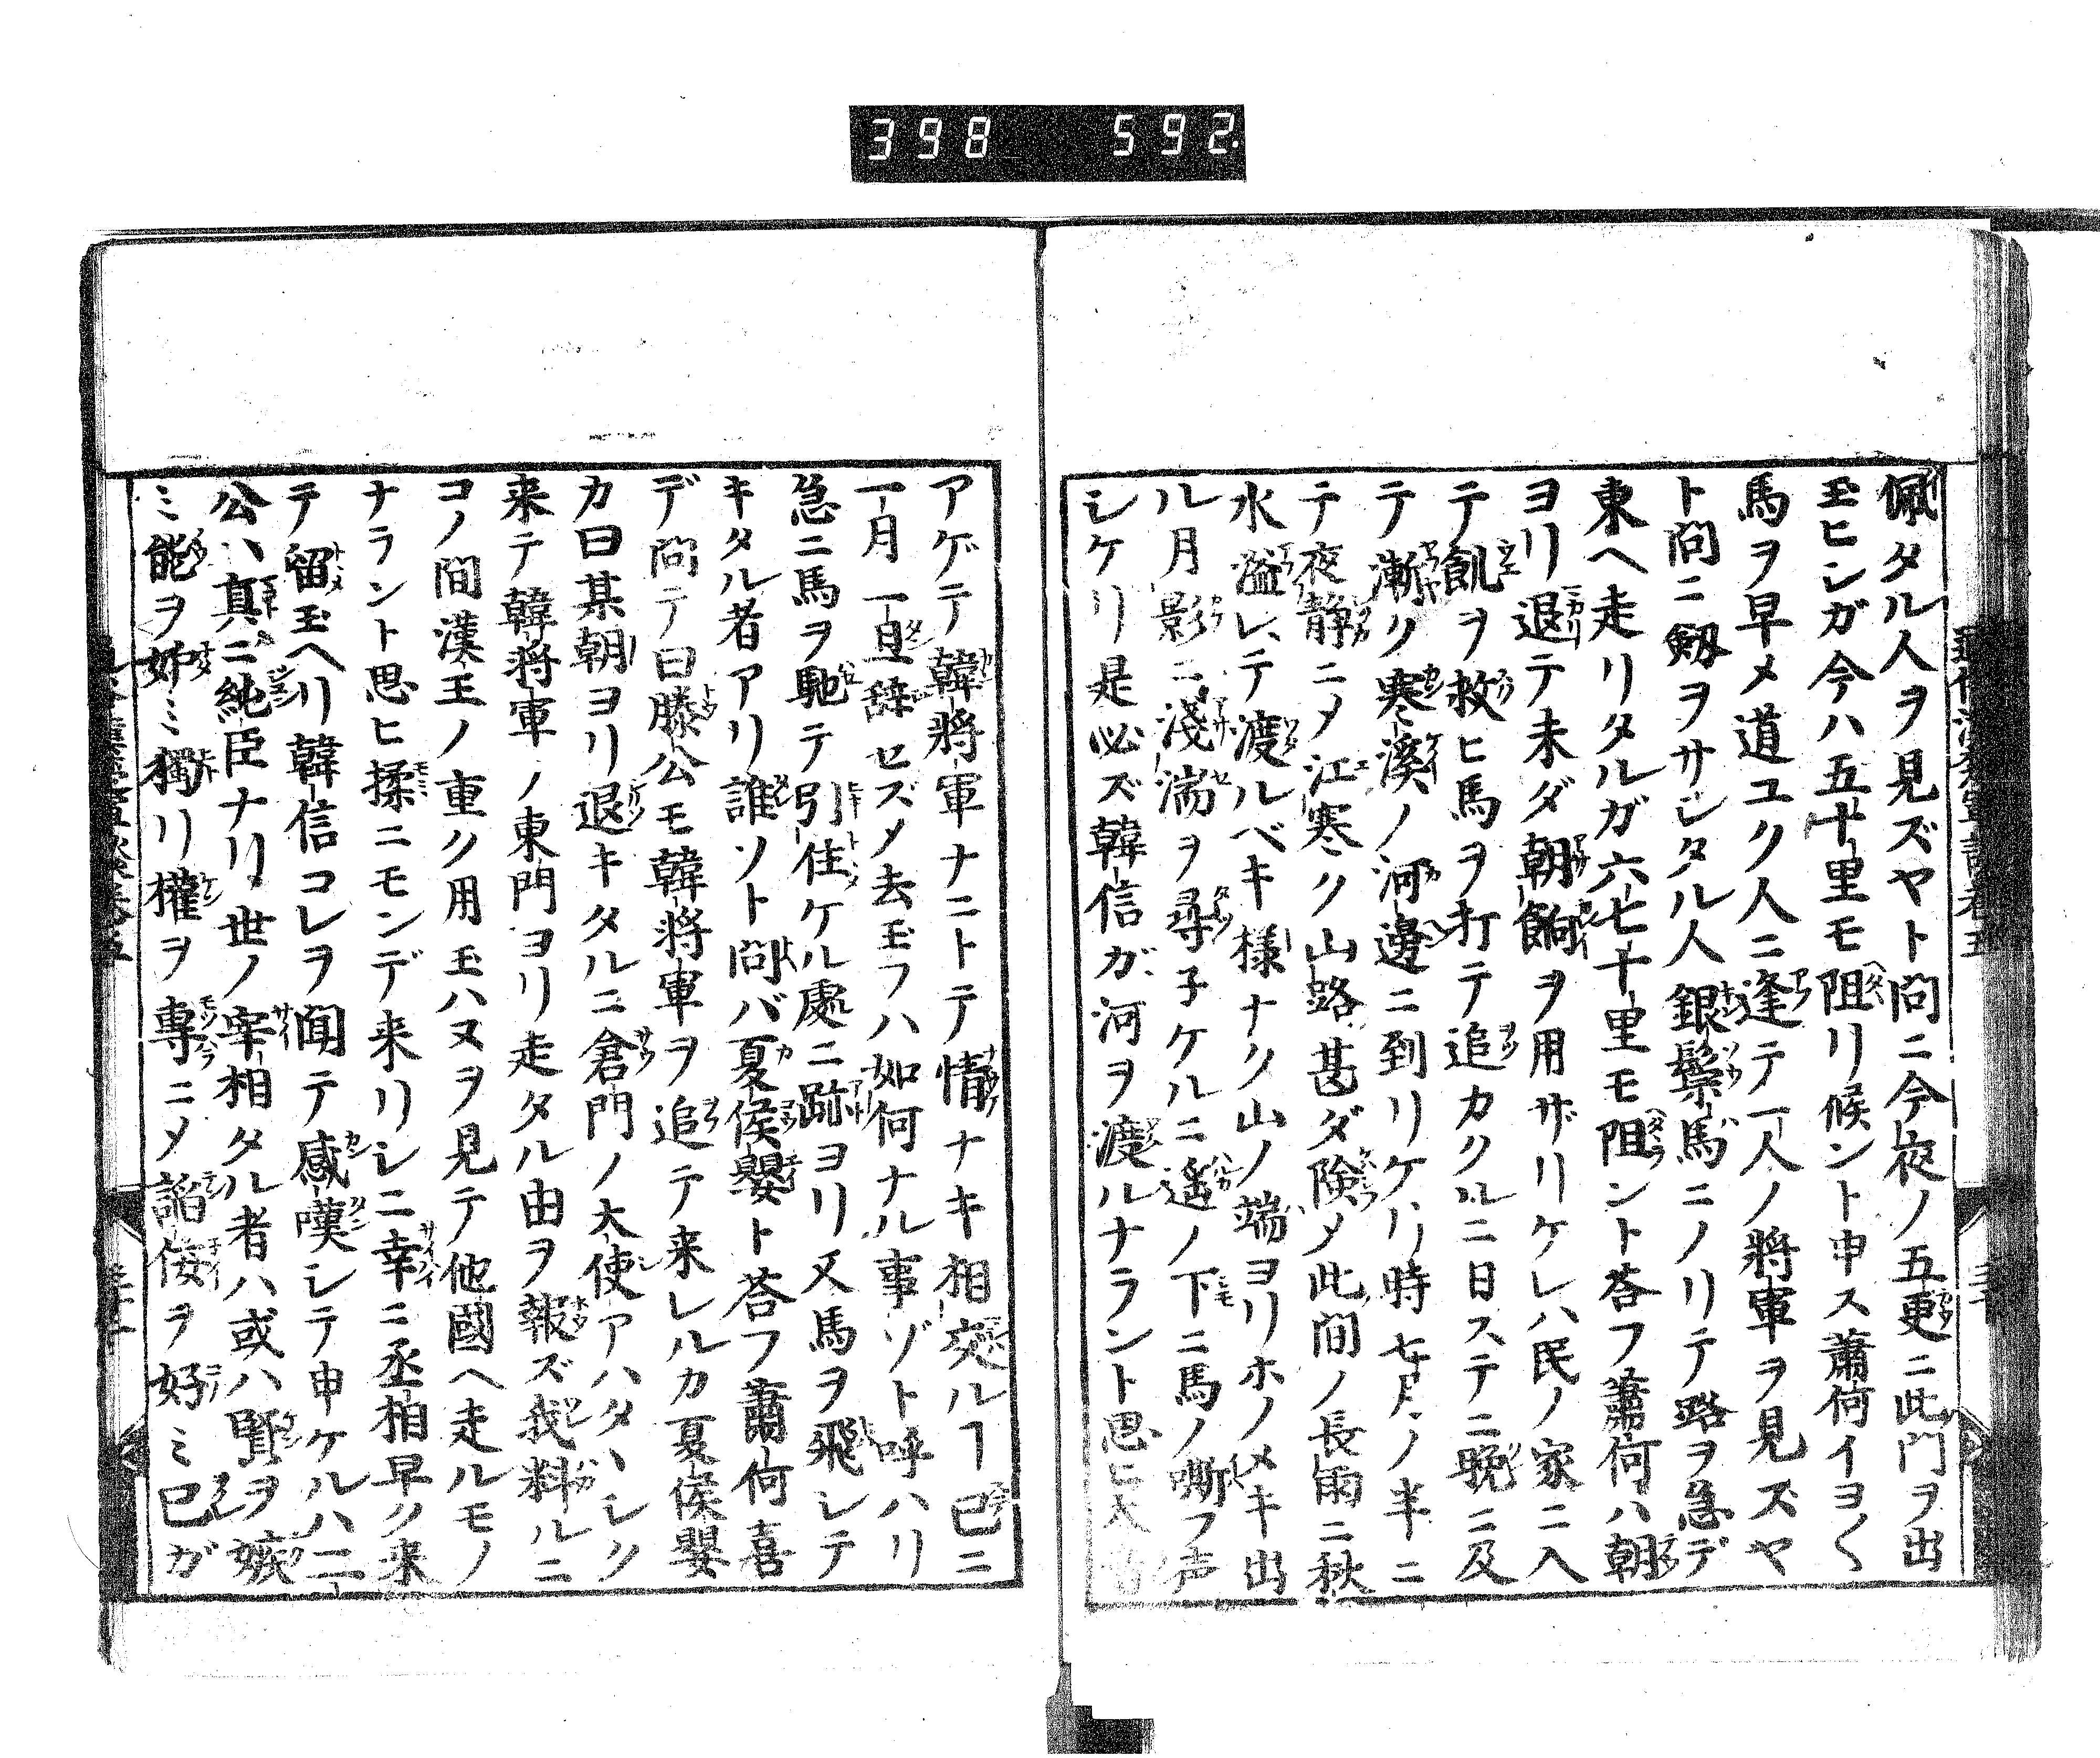 398 592.
佩タル人ヲ見ズヤト問ニ今夜ノ五更ニ此門ヲ出
玉ヒシガ今ハ五十里モ阻リ候ント申ス蕭何イヨ〱
馬ヲ早メ道ユク人ニ逢テ一人ノ將軍ヲ見ズヤ
ト問ニ劔ヲサシタル人銀鬃馬ニノリテ路ヲ急デ
東ヘ走リタルガ六七十里モ阻ント荅フ蕭何ハ朝
ヨリ退テ未ダ朝餉ヲ用ザリケレハ民ノ家ニ入
テ飢ヲ救ヒ馬ヲ打テ追カクルニ日ステニ晩ニ及
テ漸ク寒溪ノ河邊ニ到リケリ時七月ノ半ニ
テ夜静ニメ江寒ク山路甚ダ険メ此間ノ長雨ニ秋
水溢レテ渡ルベキ様ナク山ノ端ヨリホノメキ出
ル月影ニ淺湍ヲ尋子ケルニ遥ノ下ニ馬ノ嘶フ声
シケリ是必ズ韓信ガ河ヲ渡ルナラント思ヒ大音
アゲテ韓將軍ナニトテ情ナキ相交ルヿ已ニ
一月一旦辞セズメ去玉フハ如何ナル事ゾト呼ハリ
急ニ馬ヲ馳テ引住ケル處ニ跡ヨリ又馬ヲ飛レテ
キタル者アリ誰ソト問バ夏侯嬰ト荅フ蕭何喜
デ問テ曰滕公モ韓將軍ヲ追テ来レルカ夏侯嬰
カ曰某朝ヨリ退キタルニ倉門ノ大使アハタヽシク
来テ韓將軍ノ東門ヨリ走タル由ヲ報ズ我料ルニ
コノ間漢王ノ重ク用玉ハヌヲ見テ他國ヘ走ルモノ
ナラント思ヒ揉ニモンデ来リシニ幸ニ丞相早ク来
テ留玉ヘリ韓信コレヲ聞テ感嘆シテ申ケルハ二
公ハ真ニ純臣ナリ世ノ宰相タル者ハ或ハ賢ヲ嫉
ミ能ヲ妬ミ獨リ權ヲ專ニメ諂佞ヲ好ミ已ガ